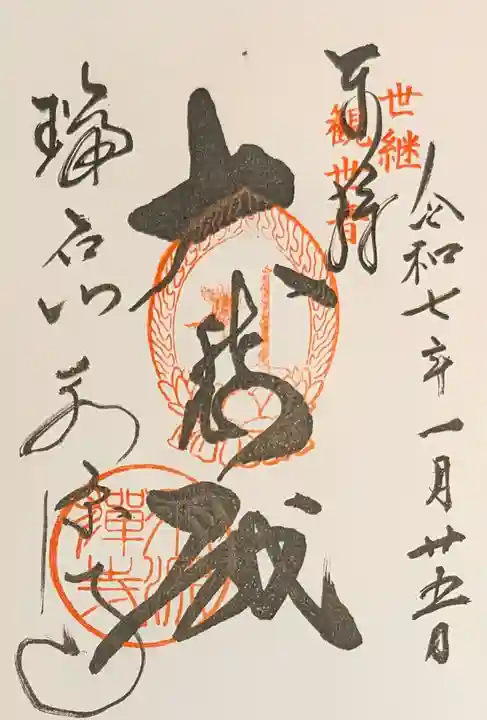 令和七年一月廿五日
世継
観世音
奉拝
瑞石山永源寺
永源
禪寺